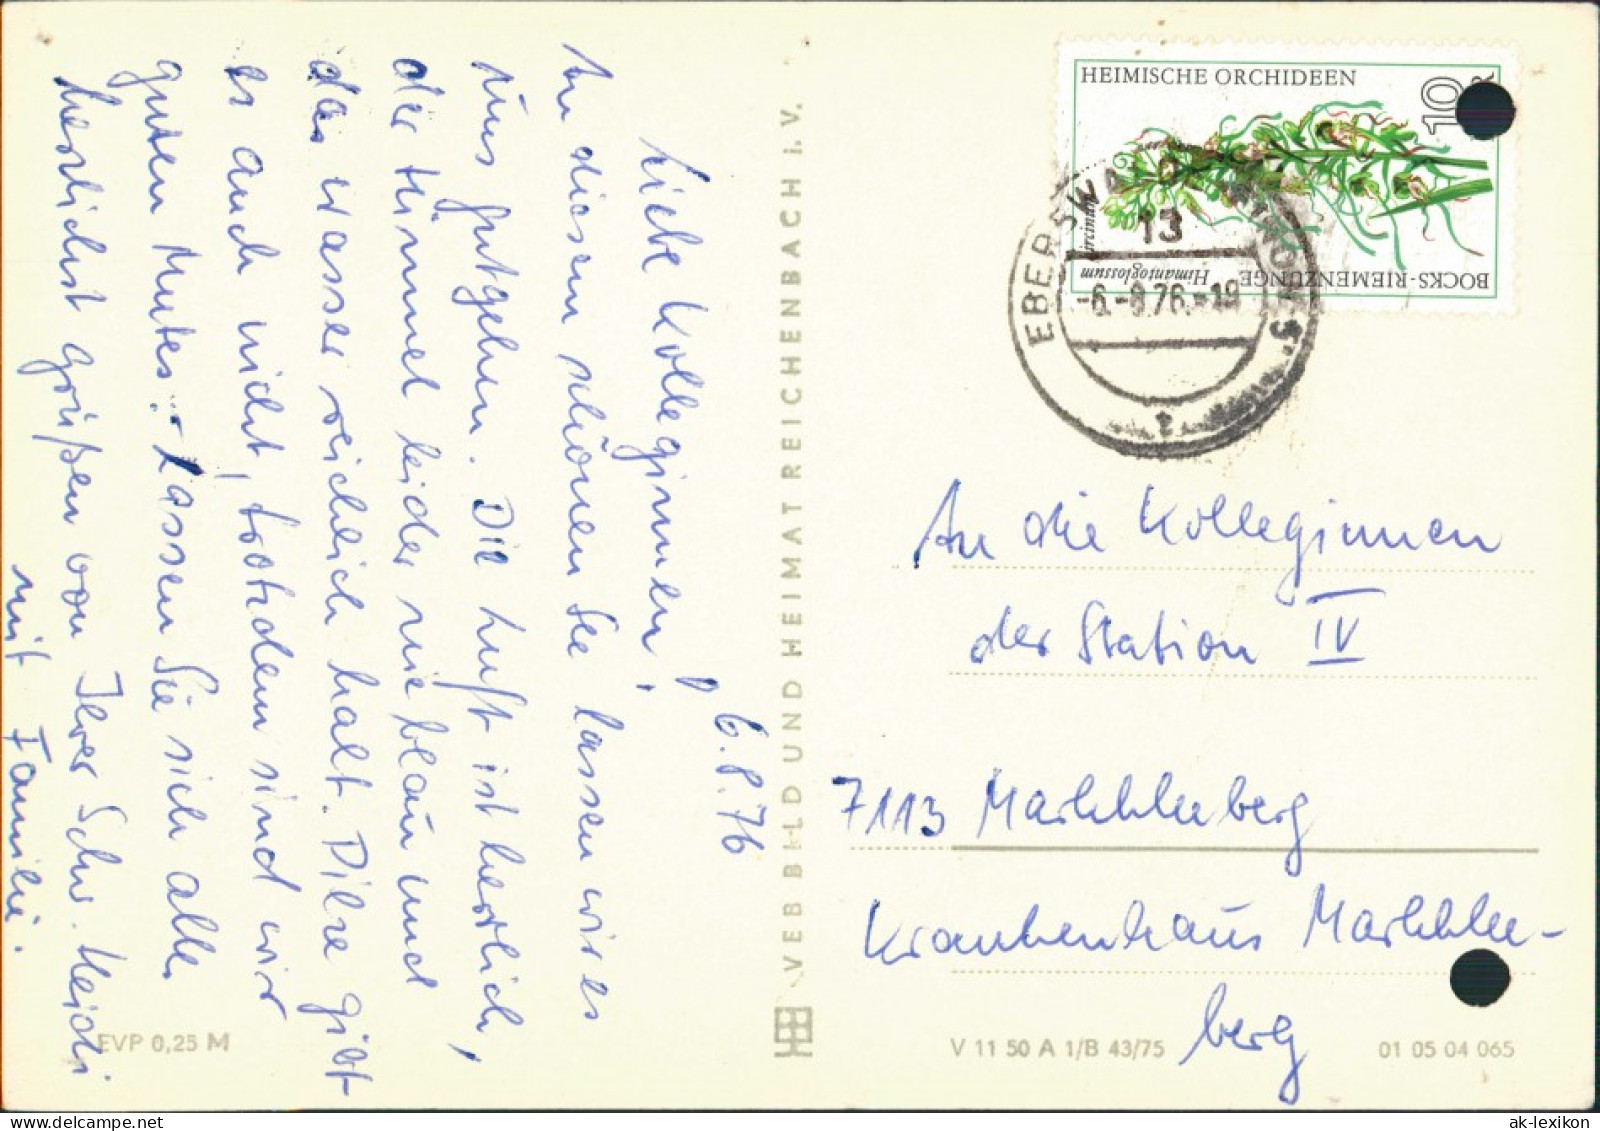 6.8.76
Liebe Kolleginnen!
An diesem schönen See lassen wir es
uns gutgehen. Die Luft ist herrlich,
der Himmel leider nie blau und
das Wasser reichlich kalt. Pilze gibt
es auch nicht, trotzdem sind wir
guten Mutes. - Lassen Sie sich alle
herzlichst grüßen von Ihrer Schw. Heidi
mit Familie.
EVP 0,25 M
VEB BILD UND HEIMAT REICHENBACH i. V.
HEIMISCHE ORCHIDEEN
10
BOCKS-RIEMENZUNGE
Himantoglossum
hircinum
EBERSWALDE-
13
-6.-8.76.-18
An die Kolleginnen
der Station IV
7113 Markkleeberg
Krankenhaus Markklee-
berg
V 11 50 A 1/B 43/75
01 05 04 065
ak-lexikon